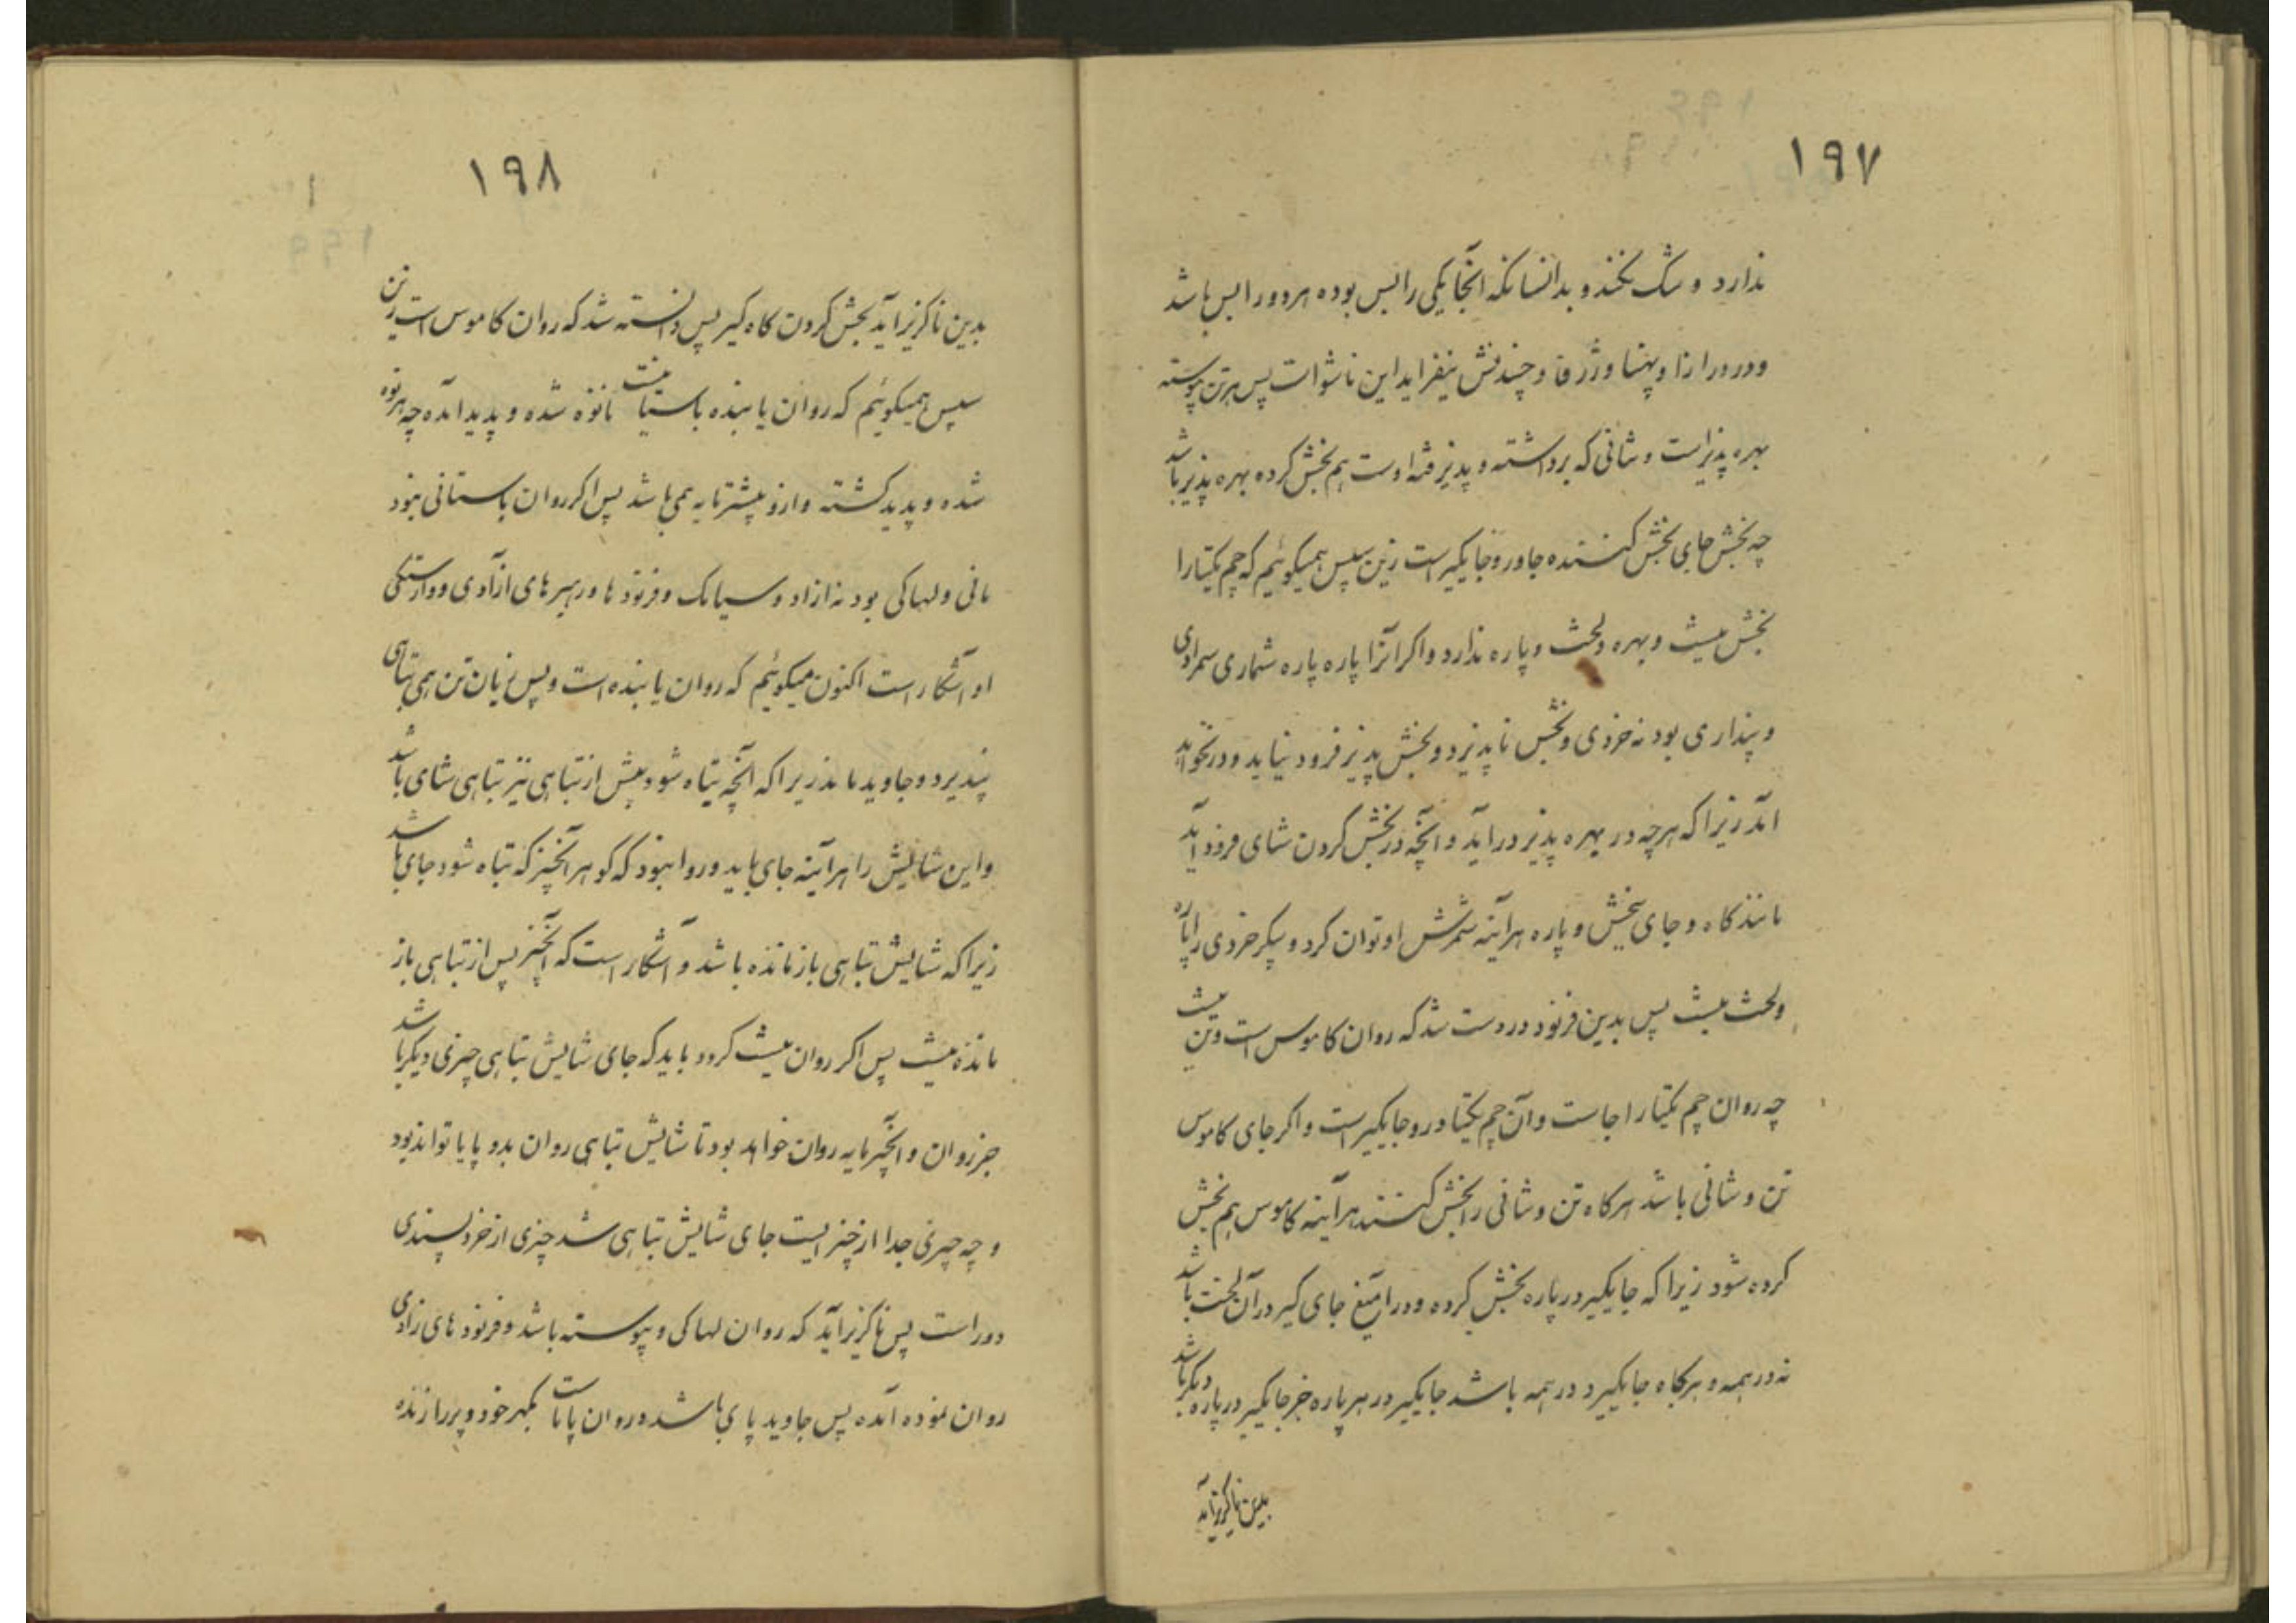 ۱۹۷
ندارد و شک نکند و بدانسانکه آنجا یکی را بس بوده هر دو را بس باشد
و در درازنا و پهنا و ژرفا و چندنش نیفزاید این ناشو است پس هر تن پیوسته
بهره پذیر است و شانی که برداشته و پذیرفته اوست هم بخش کرده بهره پذیر باشد
چه بخش جای بخش کننده جاور و جایگیر است زین سپس همیگوئیم که چم یکتا را
بخش نیست و بهره و لخت و پاره ندارد و اگر آنرا پاره پاره شماری سمرادی
و پنداری بود نه خردی و بخش ناپذیرد و بخش پذیر فرود نیاید و در نخواهد
آمد زیرا که هرچه در بهره پذیر درآید و آنچه در بخش کردن شای فرود آید
مانند کاه و جای بخش و پاره هرآینه شمرش او توان کرد و پیکر خردی را پاره
و لخت نیست پس بدین فرنود درست شد که روان کاموس است و تن نیست
چه روان چم یکتا را جاست و آن چم یکتا درو جایگیر است و اگر جای کاموس
تن و شانی باشد هرکاه تن و شانی را بخش کنند هرآینه کاموس هم بخش
کرده شود زیرا که جایگیر در پاره بخش کرده و در آمیغ جای گیر در آن لخت باشد
نه در همه و هرکاه جایگیرد در همه باشد جایگیر در هر پاره جز جایگیر در پاره دیگر باشد
بدین ناگزیر آید
۱۹۸
بدین ناگزیر آید بخش کردن کاه گیر پس دانسته شد که روان کاموس است نه تن
سپس همیگوئیم که روان یابنده باستیان نیست تا نوه شده و پدید آمده چه هر نوه
شده و پدید گشته و ازو پیشتر مایه همی باشد پس اگر روان باستانی نبود
مانی و لهاکی بود نه ازاد و سیامک و فرنودها و رهبرهای ازآدی و وارستگی
او آشکار است اکنون میگوئیم که روان یابنده است و پس زیان تن همی تباهی
نپذیرد و جاوید ماند زیرا که آنچه تباه شود پیش از تباهی نیز تباهی شای باشد
و این شایش را هرآینه جای باید و روا نبود که گوهر آنچیز که تباه شود جای باشد
زیرا که شایش تباهی باز مانده باشد و آشکار است که آنچیز پس از تباهی باز
مانده نیست پس اگر روان نیست گردد باید که جای شایش تباهی چیزی دیگر باشد
جز روان و آنچیز مایه روان خواهد بود تا شایش تباهی روان بدو پایا تواند بود
و چه چیزی جدا از چیزیست جای شایش تباهی شد چیزی از خرد پسندی
دور است پس ناگزیر آید که روان لهاکی و پیوسته باشد و فرنودهای ازادی
روان نموده آمده پس جاوید پای باشد و روان پایاست بگهر خود و پردازنده